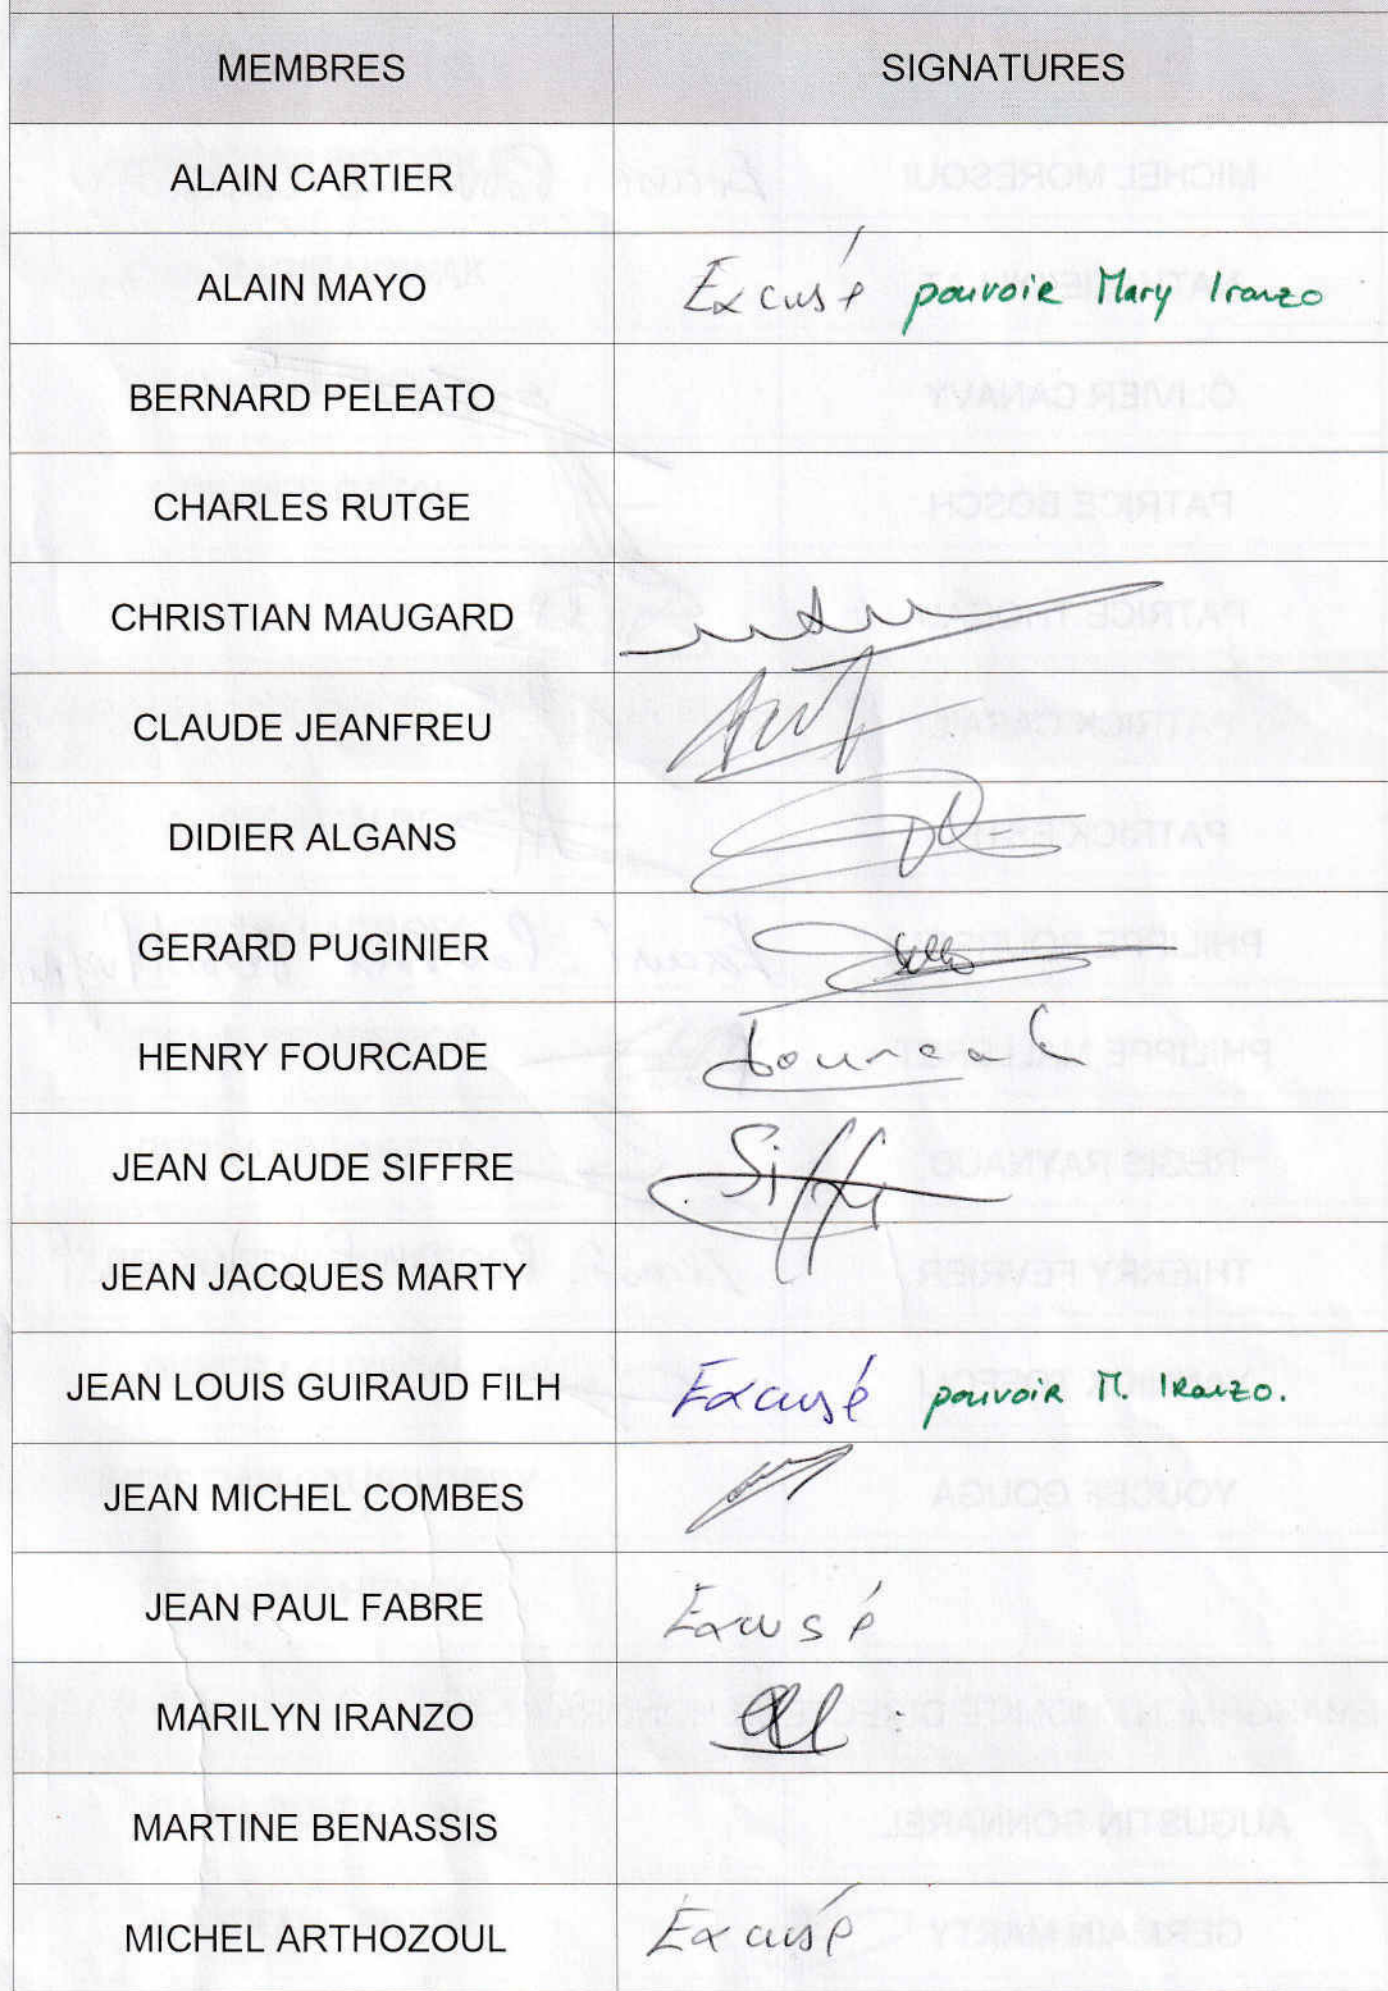 MEMBRES SIGNATURES
ALAIN CARTIER
ALAIN MAYO Excusé pouvoir Mary Iranzo
BERNARD PELEATO
CHARLES RUTGE
CHRISTIAN MAUGARD
CLAUDE JEANFREU
DIDIER ALGANS
GERARD PUGINIER
HENRY FOURCADE
JEAN CLAUDE SIFFRE Siffre
JEAN JACQUES MARTY
JEAN LOUIS GUIRAUD FILH Excusé pouvoir M. Iranzo.
JEAN MICHEL COMBES
JEAN PAUL FABRE Excusé
MARILYN IRANZO
MARTINE BENASSIS
MICHEL ARTHOZOUL Excusé